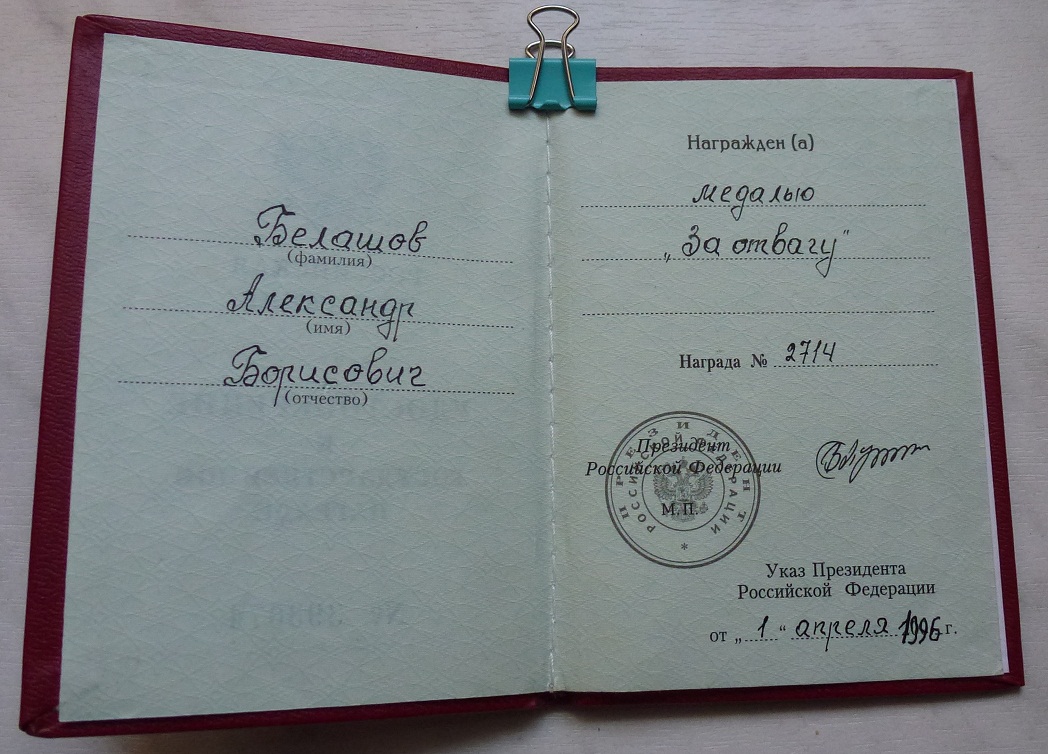 Белашов
(фамилия)
Александр
(имя)
Борисович
(отчество)
Награжден (а)
медалью
„За отвагу"
Награда № 2714
Президент
Российской Федерации
М.П.
ПРЕЗИДЕНТ
РОССИЙСКОЙ ФЕДЕРАЦИИ
Указ Президента
Российской Федерации
от „ 1 “ апреля 1996 г.